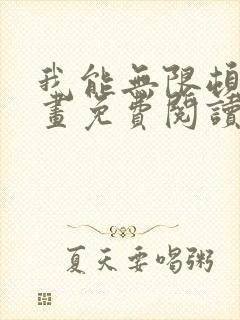 我能無限頓
畫免費閱讀
夏天要喝粥